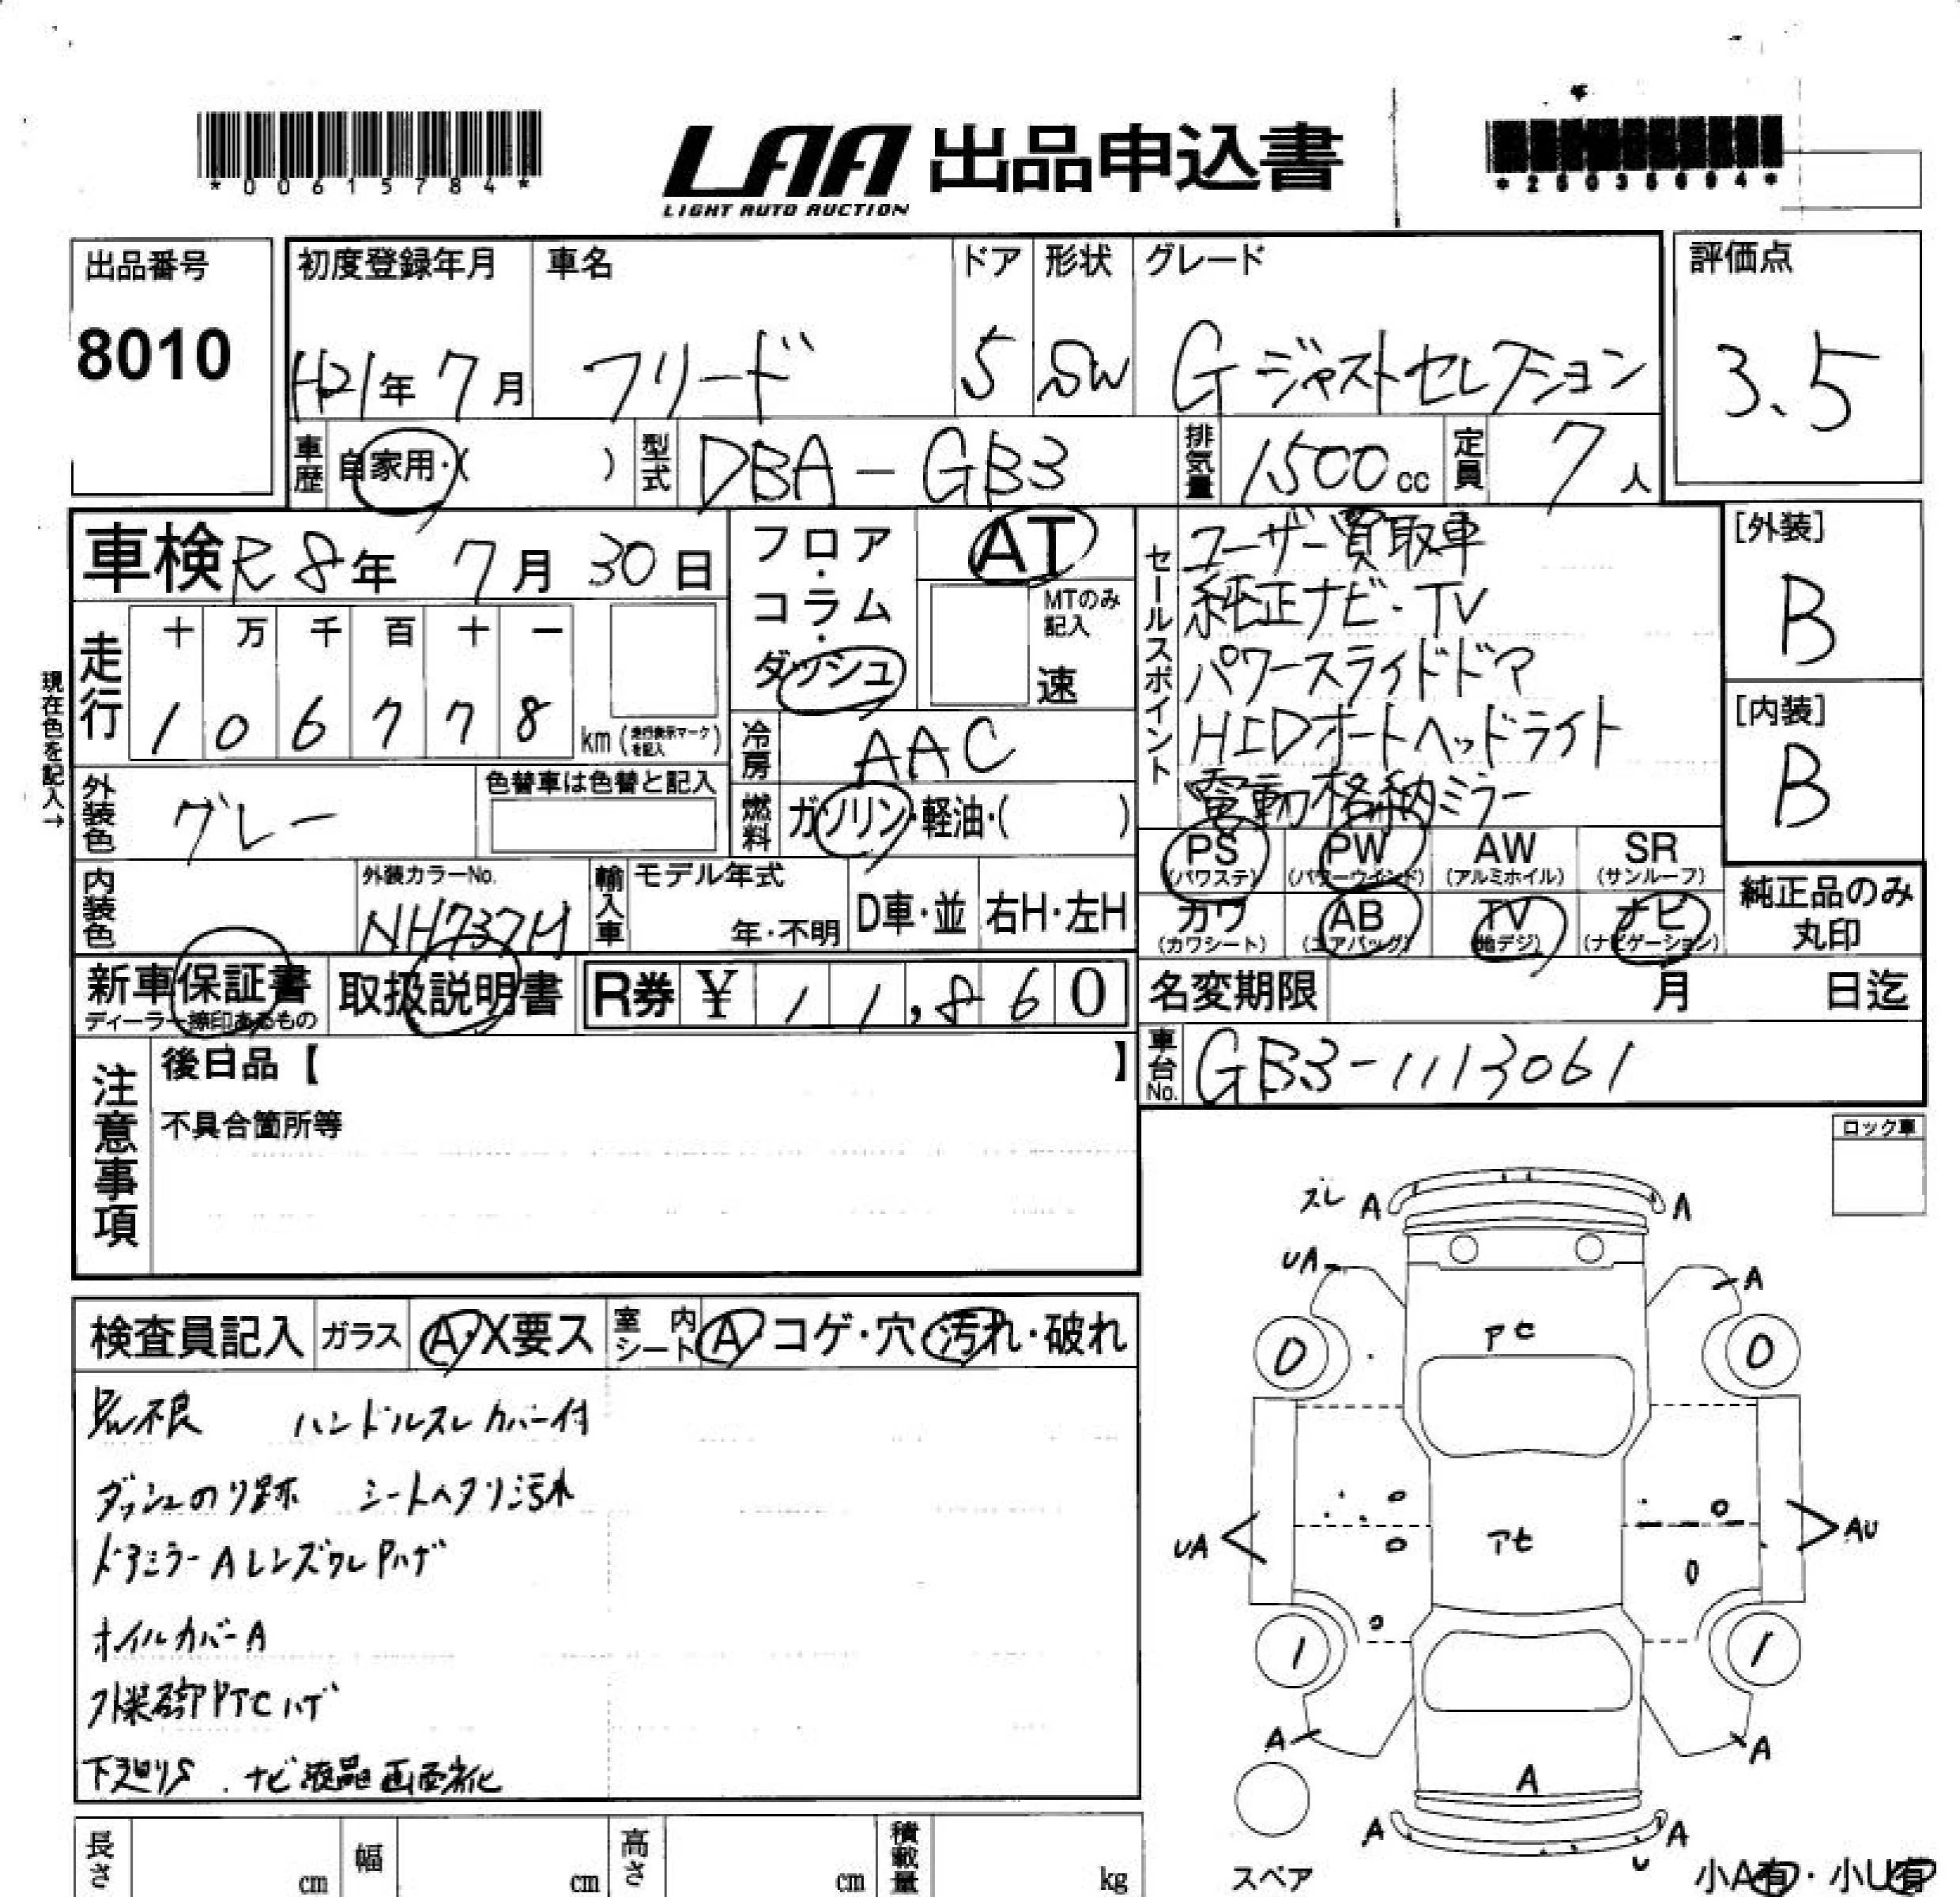 *00615784*
LAA 出品申込書
LIGHT AUTO AUCTION
*25035694*
出品番号
8010
初度登録年月
H21年 7月
車名
フリード
ドア
5
形状
SW
グレード
G ジャストセレクション
評価点
3.5
車歴
自家用・( )
型式
DBA-GB3
排気量
1500cc
定員
7人
車検 R8年 7月 30日
フロア・コラム・ダッシュ
AT
MTのみ記入
速
セールスポイント
ユーザー買取車
純正ナビ・TV
パワースライドドア
HIDオートヘッドライト
電動格納ミラー
[外装]
B
[内装]
B
現在色を記入→
走行
十 万 千 百 十 一
1 0 6 7 7 8 km (走行表示マークを記入)
冷房
AAC
外装色
グレー
色替車は色替と記入
燃料
ガソリン・軽油・( )
内装色
外装カラーNo.
NH737M
輸入車
モデル年式
年・不明
D車・並
右H・左H
PS (パワステ)
PW (パワーウインド)
AW (アルミホイル)
SR (サンルーフ)
カワ (カワシート)
AB (エアバッグ)
TV (地デジ)
ナビ (ナビゲーション)
純正品のみ丸印
新車保証書
ディーラー捺印あるもの
取扱説明書
R券 ¥ 11,860
名変期限 月 日迄
車台No.
GB3-1113061
注意事項
後日品【 】
不具合箇所等
ロック車
検査員記入
ガラス A・X要ス
室内シート A・コゲ・穴・汚れ・破れ
ハンドルスレ カバー付
ダッシュのり跡 シートヘタリ汚れ
ドアミラーAレンズワレPハゲ
ホイルカバーA
下廻りS ナビ液晶画面劣化
スレ A A
UA A
アセ
0 0
UA AU
アセ
1 1
A A
A
A A
U
スペア
小A有・小U有
長さ cm
幅 cm
高さ cm
積載量 kg